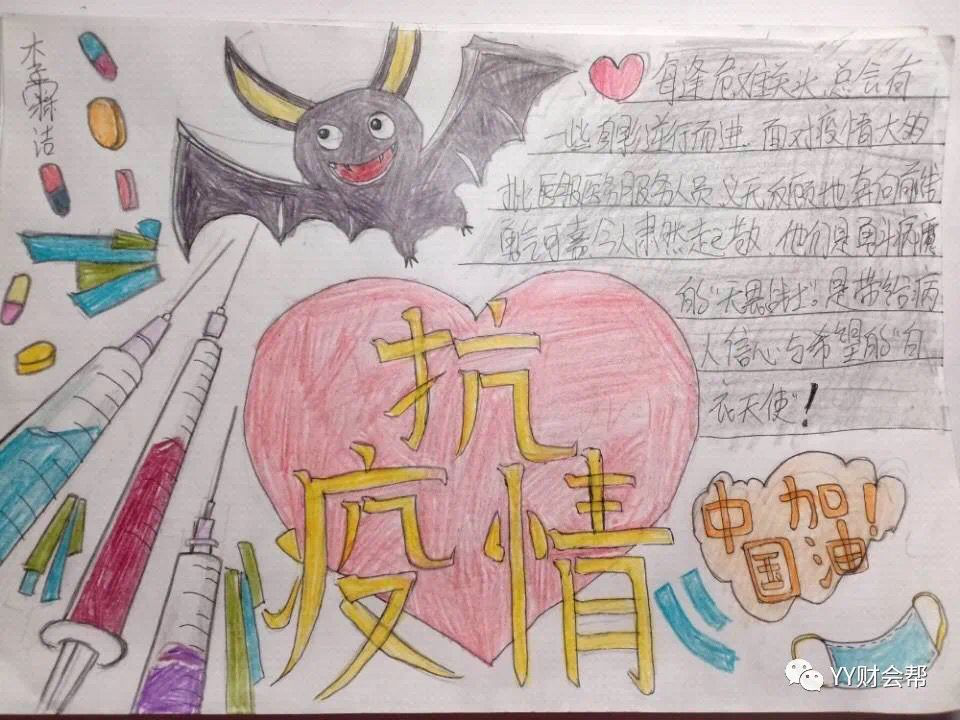 每逢危难关头总会有
一些身影逆行而进.面对疫情大的
批医务服务人员义无反顾地奔向前
勇气可嘉令人肃然起敬.他们是勇斗病魔
的"无畏战士"。是带给病
人信心与希望的"白
衣天使"!
抗
疫情
中国加油!
YY财会帮